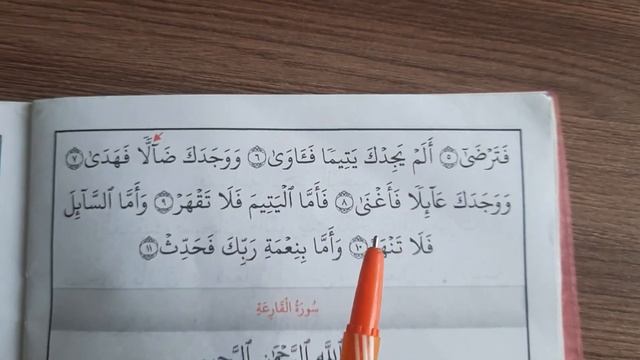 فَتَرْضَىٰٓ ٥ أَلَمْ يَجِدْكَ يَتِيمًا فَـَٔاوَىٰ ٦ وَوَجَدَكَ ضَآلًّا فَهَدَىٰ ٧
وَوَجَدَكَ عَآئِلًا فَأَغْنَىٰ ٨ فَأَمَّا الْيَتِيمَ فَلَا تَقْهَرْ ٩ وَأَمَّا السَّآئِلَ
فَلَا تَنْهَرْ ١٠ وَأَمَّا بِنِعْمَةِ رَبِّكَ فَحَدِّثْ ١١
سُورَةُ الْقَارِعَةِ
اللَّهِ الرَّحْمَٰنِ الرَّحِيمِ